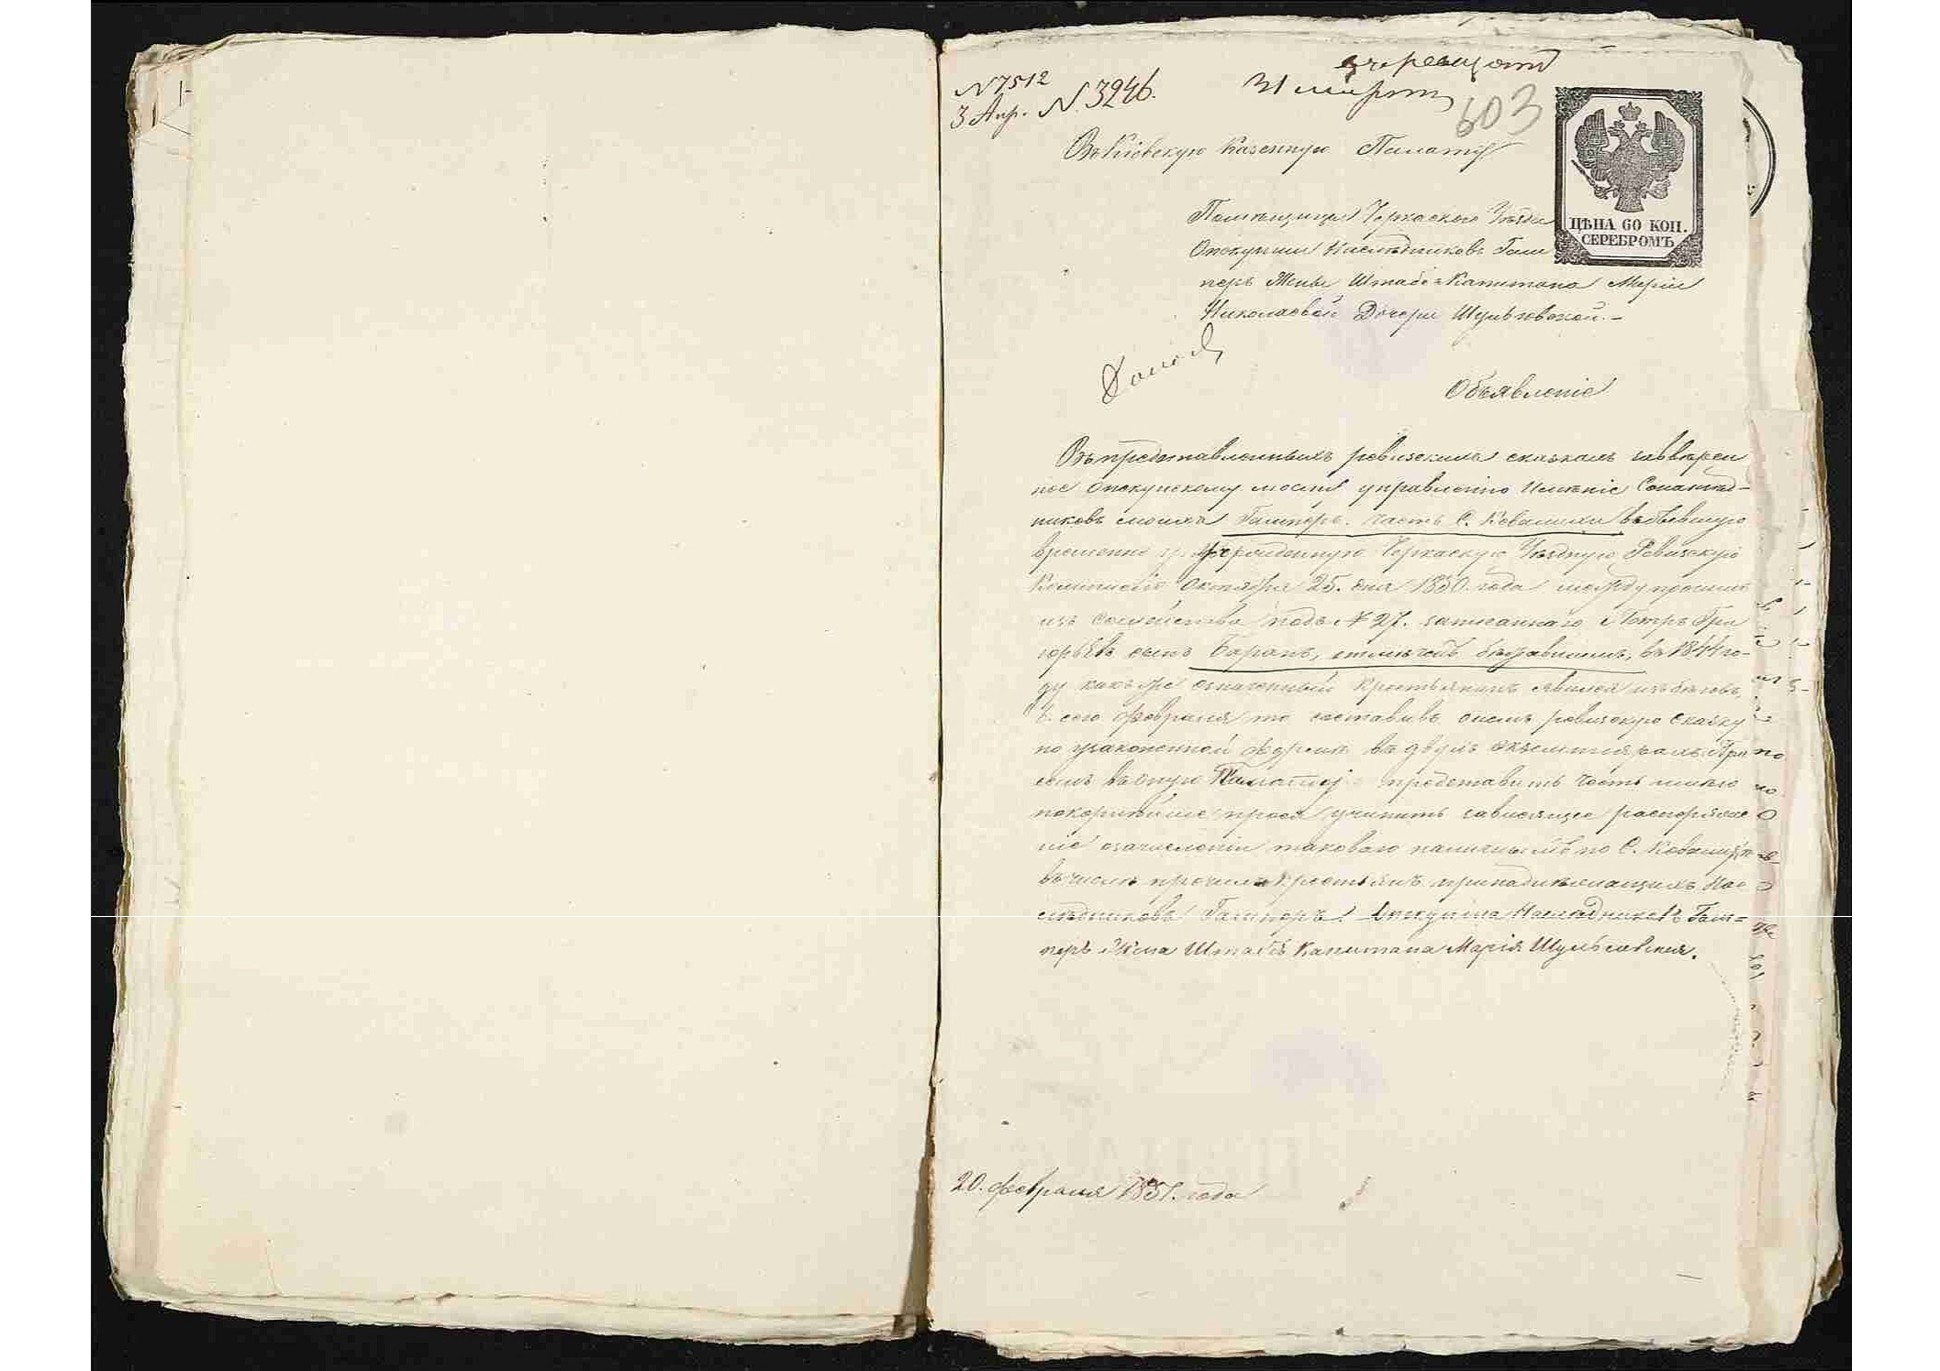 N 7512
3 Апр. N. 3246.
31 марта
603
Въ Кіевскую Казенную Палату
ЦѢНА 60 КОП.
СЕРЕБРОМЪ
Помѣщицы Черкаского Уѣзда
Опекунши Наслѣдниковъ Гам
перъ Жены Штабсъ Капитана Маріи
Николаевой Дочери Шульговской.-
Объявленіе
Въ представленныхъ ревизскихъ сказкахъ
ное опекунскому моему управленію Имѣніе
никовъ моихъ Гамперъ. часть С. Ковалихи въ бывшую
временно учрежденную Черкаскую Уѣздную Ревизскую
Коммисію Октября 25. дня 1850. года между прочимъ
изъ семейства подъ № 27. записаннаго Петръ Гри
горьевъ сынъ Баранъ, отмѣченъ бѣжавшимъ, въ 1844 го-
ду какъ же означенный крестьянинъ явился изъ бѣговъ,
сего февраля то составивъ онемъ ревизскую сказку
по узаконенной формѣ въ двухъ экземплярахъ. При
семъ въ оную Палату представить честь имѣю
покорнѣйше прося учинить зависящее распоряже
ніе озачисленіи таковаго наличнымъ по С. Ковалихѣ
въ число прочихъ крестьянъ принадлѣжащихъ Нас
лѣдниковъ Гамперъ. Опекунша Наслѣдниковъ Гам=
перъ Жена Штабсъ Капитана Марія Шульговская.
20. февраля 1851. года